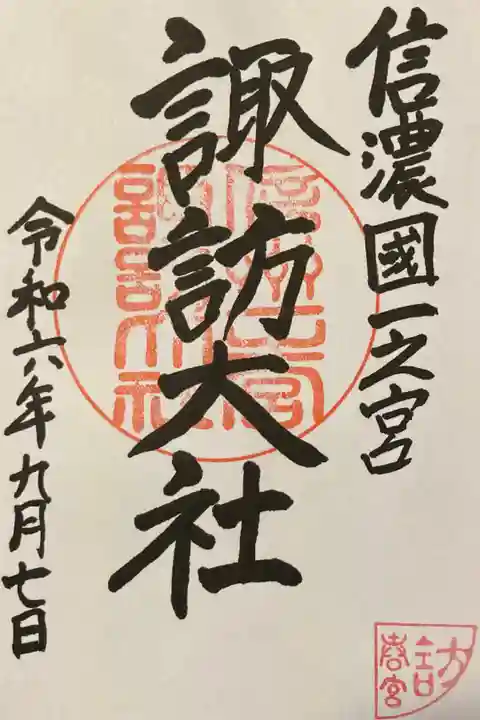 信濃國一之宮
諏訪大社
令和六年九月七日